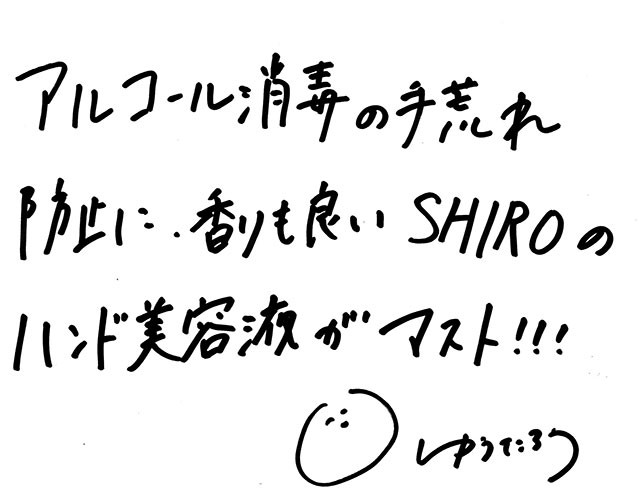 アルコール消毒の手荒れ
防止に、香りも良いSHIROの
ハンド美容液がマスト!!!
ゆうたろう